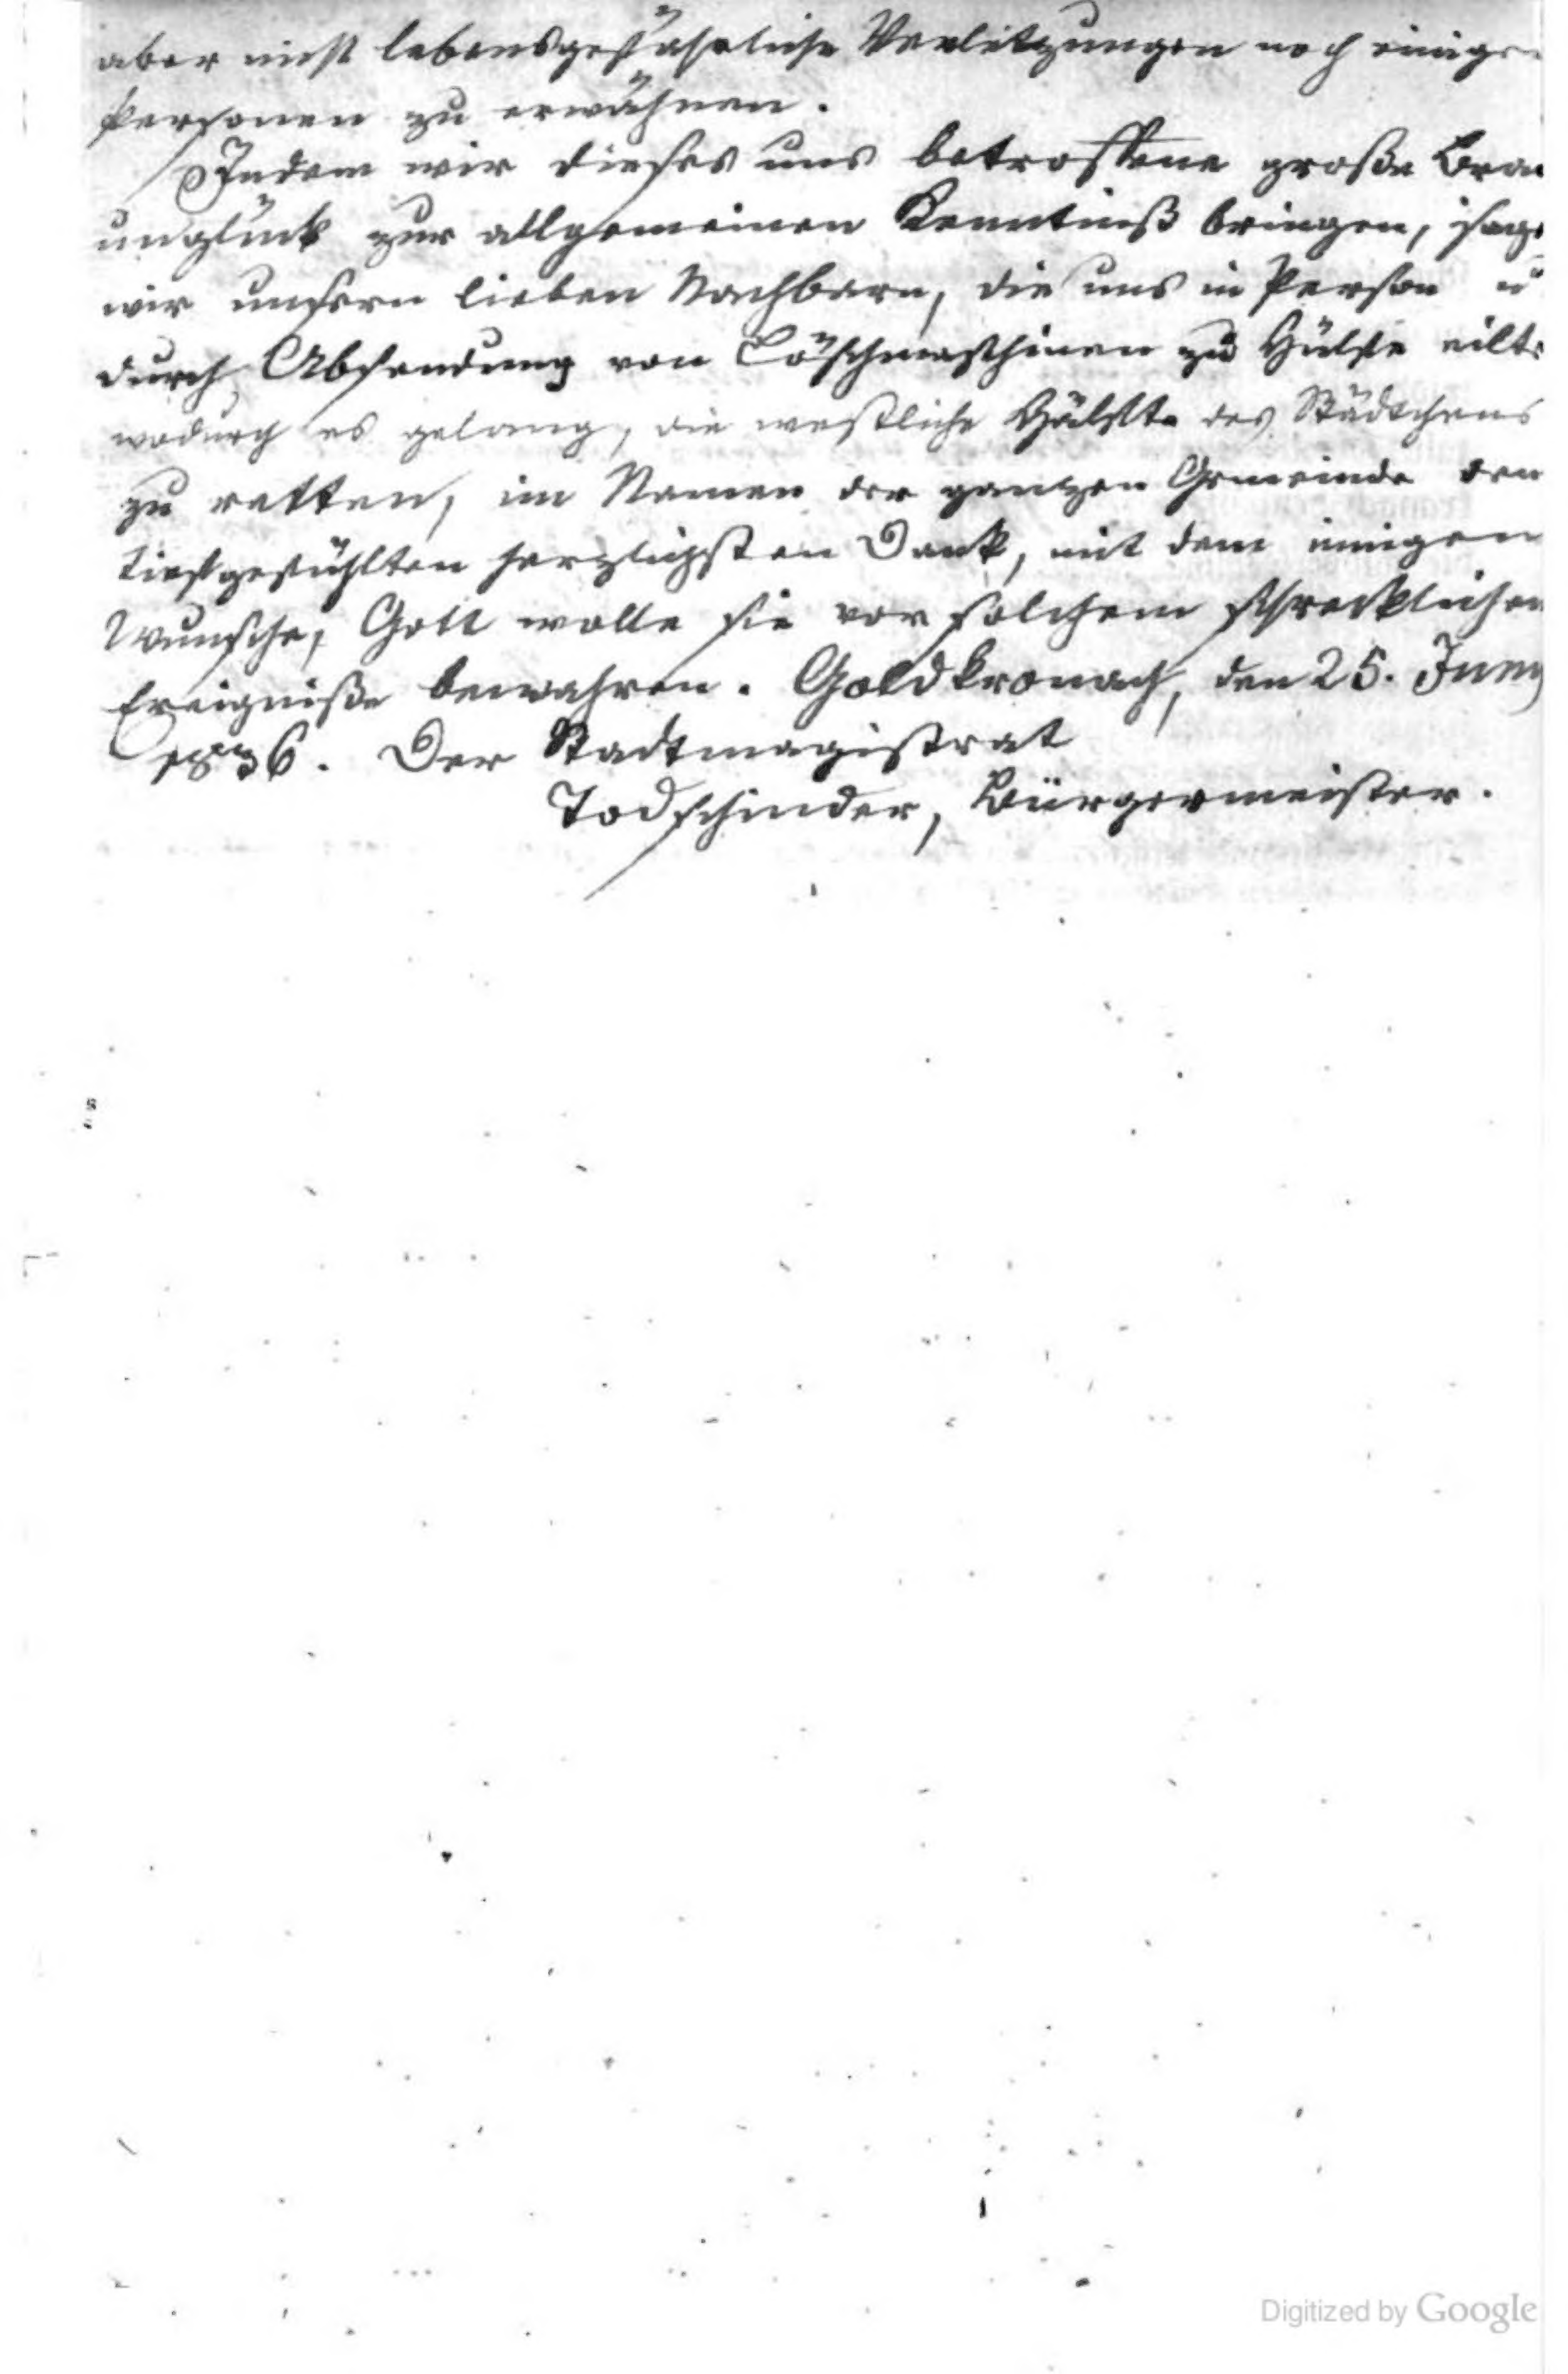 aber nicht lebensgefährliche Verletzungen noch einiger
Personen zu erwähnen.
Indem wir dieses uns betroffene große Bran
unglück zur allgemeinen Kenntniß bringen, sage
wir unsern lieben Nachbarn, die uns in Person u
durch Absendung von Löschmaschinen zu Hülfe eilte
wodurch es gelang, die westliche Hälfte des Städtchens
zu retten, im Namen der ganzen Gemeinde den
tiefgefühlten herzlichsten Dank, mit dem innigen
Wunsche, Gott wolle sie vor solchem schrecklichen
Ereigniße bewahren. Goldkronach, den 25. Juny
1836. Der Stadtmagistrat
Todschinder, Bürgermeister.
Digitized by Google